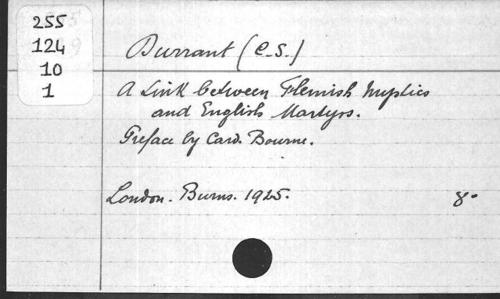 255
124
10
1
Durrant (C.S.)
A Link between Flemish Mystics
and English Martyrs.
Preface by Card. Bourne.
London. Burns. 1925. 8º